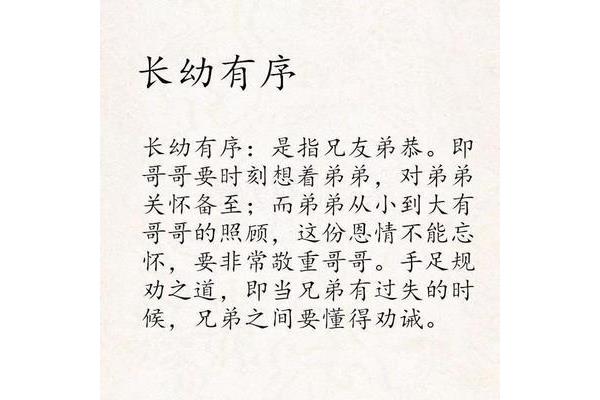 长幼有序
长幼有序：是指兄友弟恭。即
哥哥要时刻想着弟弟，对弟弟
关怀备至；而弟弟从小到大有
哥哥的照顾，这份恩情不能忘
怀，要非常敬重哥哥。手足规
劝之道，即当兄弟有过失的时
候，兄弟之间要懂得劝诫。